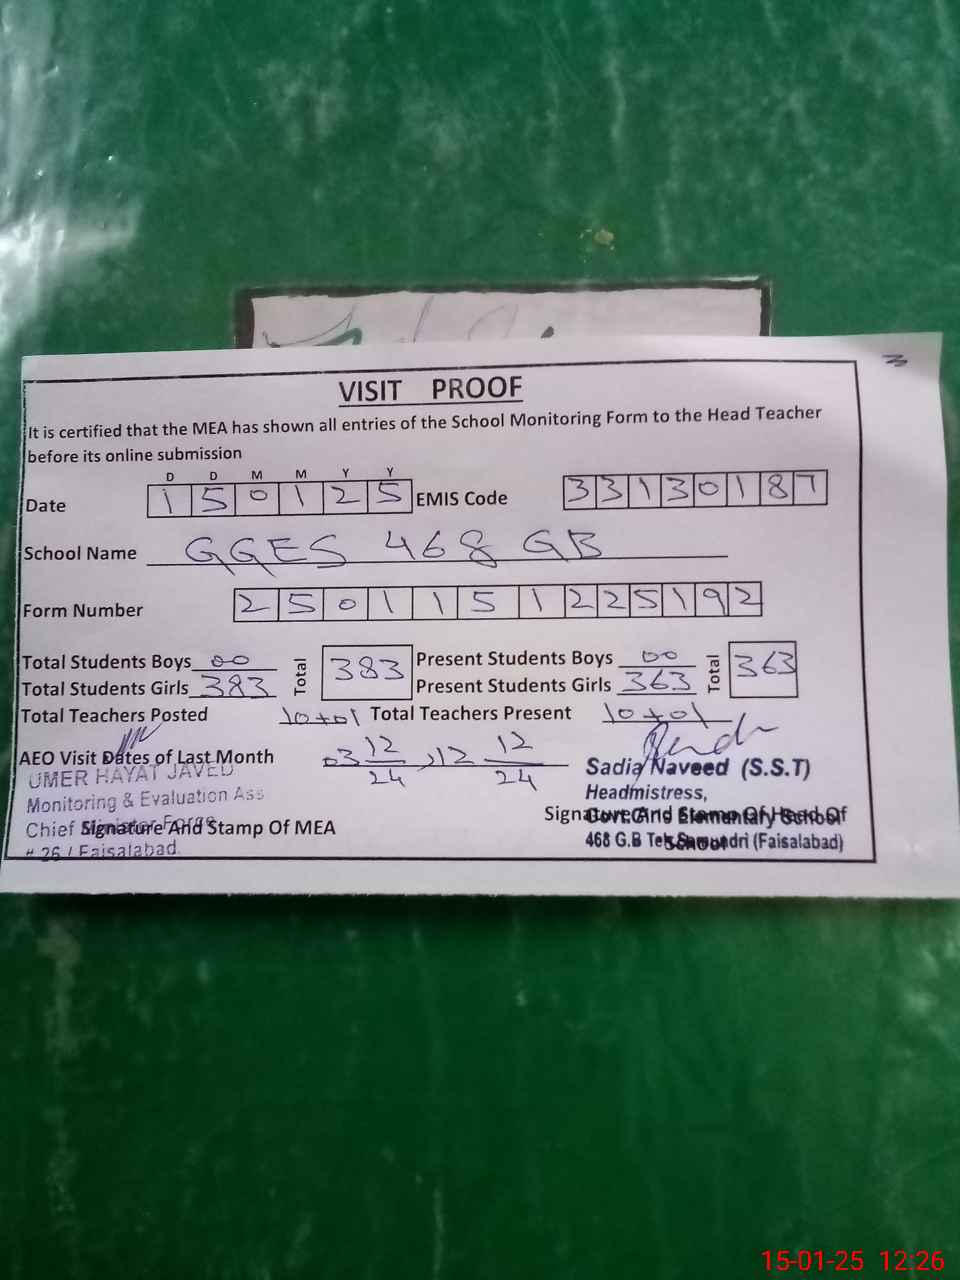 3
VISIT PROOF
It is certified that the MEA has shown all entries of the School Monitoring Form to the Head Teacher
before its online submission
D D M M Y Y
Date 1 5 0 1 2 5 EMIS Code 3 3 1 3 0 1 8 7
School Name GGES 468 GB
Form Number 2 5 0 1 1 5 1 2 2 5 1 9 2
Total Students Boys 00 Total 383 Present Students Boys 00 Total 363
Total Students Girls 383 Present Students Girls 363
Total Teachers Posted 10+01 Total Teachers Present 10+01
AEO Visit Dates of Last Month 03 12/24, 12 12/24
UMER HAYAT JAVED
Monitoring & Evaluation Ass
Chief Minister Force
# 26 / Faisalabad
Signature And Stamp Of MEA
Sadia Naveed (S.S.T)
Headmistress,
Govt. Girls Elementary School
468 G.B Teh Samundri (Faisalabad)
Signature And Stamp Of Head Of
School
15-01-25 12:26